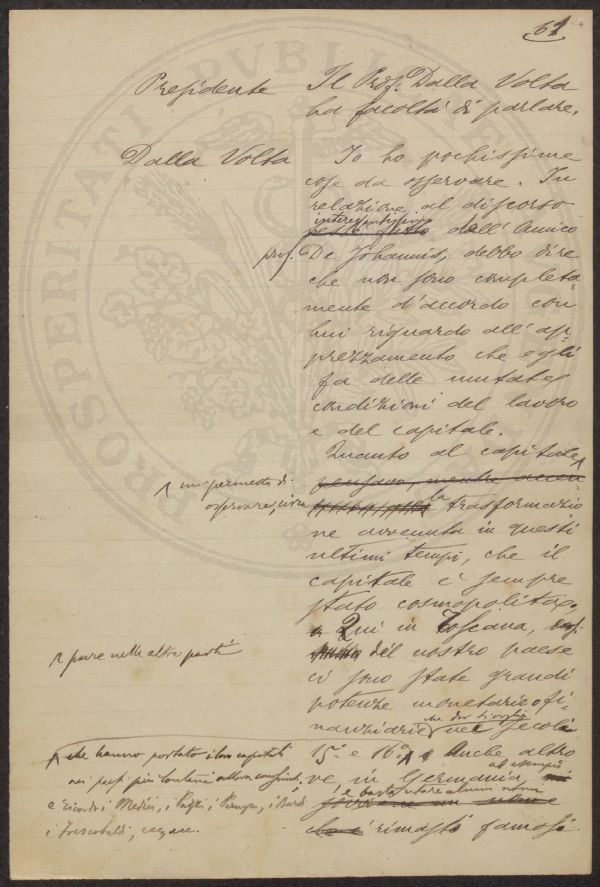 61
Presidente Il Prof. Dalla Volta
ha facoltà di parlare.
Dalla Volta Io ho pochissime
cose da osservare. In
relazione al discorso
interessantissimo
dell'amico
prof. De Johannis, debbo dire
che non sono completa-
mente d'accordo con
lui riguardo all'ap-
prezzamento che egli
fa delle mutate
condizioni del lavoro
e del capitale.
Quanto al capitale
mi permetto di
pensavo, mentre
osservare, circa la trasformazio
ne avvenuta in questi
ultimi tempi, che il
capitale è sempre
stato cosmopolita.
Qui in Toscana,
pure nelle altre parti
del nostro paese
ci sono state grandi
potenze monetarie o fi-
nanziarie nei secoli
15° e 16° Anche altro
che hanno portato i loro capitali
ve, in Germania, ad esempio
nei paesi più lontani
e basta citare alcuni nomi
e ricordo i Medici, i Pitti, i Peruzzi, i Bardi
i Frescobaldi, ecc. ecc.
che è rimasti famosi
PROSPERITATI PVBLICAE